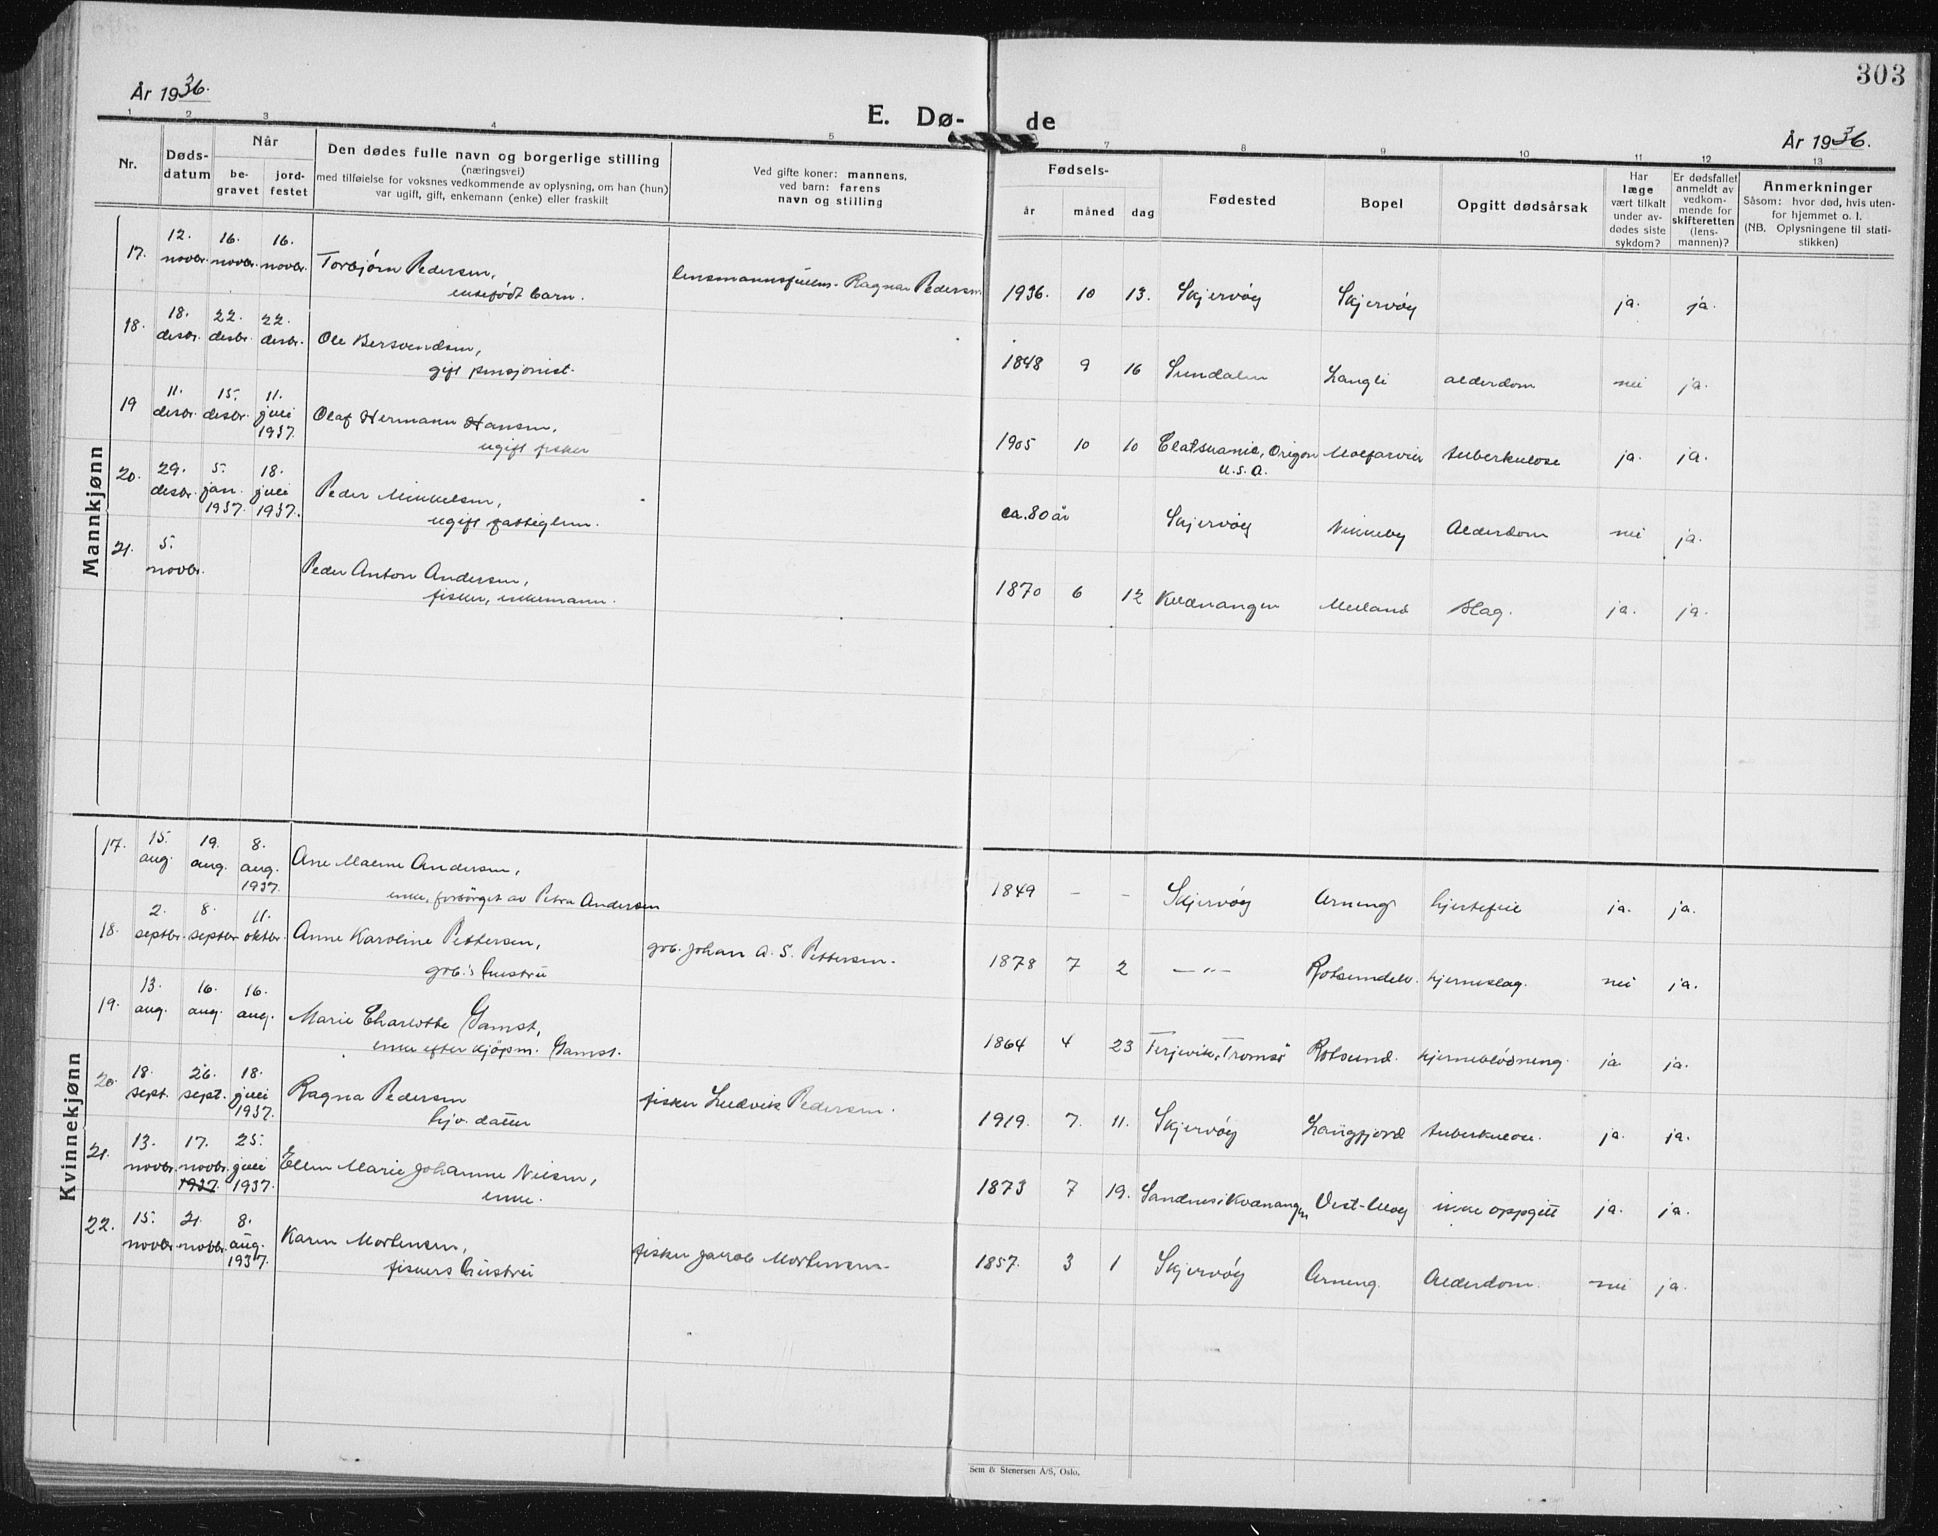 303
År 1936.
E. Dø-
de
År 1936.
1 2 3 4 5 7 8 9 10 11 12 13
Nr.
Døds-
datum
Når
be-
gravet
jord-
festet
Den dødes fulle navn og borgerlige stilling
(næringsvei)
med tilføielse for voksnes vedkommende av oplysning, om han (hun)
var ugift, gift, enkemann (enke) eller fraskilt
Ved gifte koner: mannens,
ved barn: farens
navn og stilling
Fødsels-
år måned dag
Fødested
Bopel
Opgitt dødsårsak
Har
læge
vært tilkalt
under av-
dødes siste
sykdom?
Er dødsfallet
anmeldt av
vedkom-
mende for
skifteretten
(lens-
mannen)?
Anmerkninger
Såsom: hvor død, hvis uten-
for hjemmet o. l.
(NB. Oplysningene til stati-
stikken)
Mannkjønn
17. 12. novbr. 16. novbr. 16. novbr. Torbjørn Pedersen, lensmannsfullm. Ragnar Pedersen 1936. 10 13. Skjervøy Skjervøy ja. ja.
ektefødt barn.
18. 18. desbr. 22. desbr. 22. desbr. Ole Bersvendsen, 1848 9 16 Sundalen Langli alderdom nei ja.
gift pensjonist.
19 11. desbr. 15. desbr. 11. juli 1937. Olaf Hermann Hansen, 1905 10 10 Clatskanie, Origon U.S.A. tuberkulose ja. ja.
ugift fisker
20. 29. desbr. 5. jan. 1937. 18. juli 1937. Peder Mikkelsen, ca. 80 år Skjervøy Nikkeby Alderdom nei ja.
ugift fattiglem.
21. 5. novbr. Peder Anton Andersen, 1870 6 12 Kvænangen Meiland Slag. ja. ja.
fisker, enkemann.
Kvinnekjønn
17. 15. aug. 19. aug. 8. aug. 1937. Ane Malene Andersen, 1849 - - Skjervøy Arnøng hjertefeil ja. ja.
enke, forsørget av Petra Andersen
18. 2. septbr. 8. septbr. 11. oktbr. Anne Karoline Pettersen, grb. Johan A. S. Pettersen. 1878 7 2 —"— Rotsundelv. hjerneslag. nei ja.
grb.'s hustru
19. 13. aug. 16. aug. 16. aug. Marie Charlotte Gamst, 1864 4 23 Terjevik, Tromsø Rotsund. hjerneblødning. ja ja.
enke efter kjøpm. Gamst.
20. 18. sept. 26. sept. 18. juli 1937. Ragna Pedersen fisker Ludvik Pedersen. 1919. 7. 11. Skjervøy Langfjord tuberkulose. ja. ja.
hjv. datter
21. 13. novbr. 17. novbr. 1937. 25. juli 1937. Ellen Marie Johanne Nilsen, 1873 7 19. Sandnes i Kvænangen ikke oppgitt ja. ja.
enke.
22. 15. novbr. 21. novbr. 8. aug. 1937. Karen Mortensen, fisker Jakob Mortensen. 1857. 3 1 Skjervøy Arnøng. Alderdom. nei ja.
fiskers hustru
Sem & Stenersen A/S, Oslo.